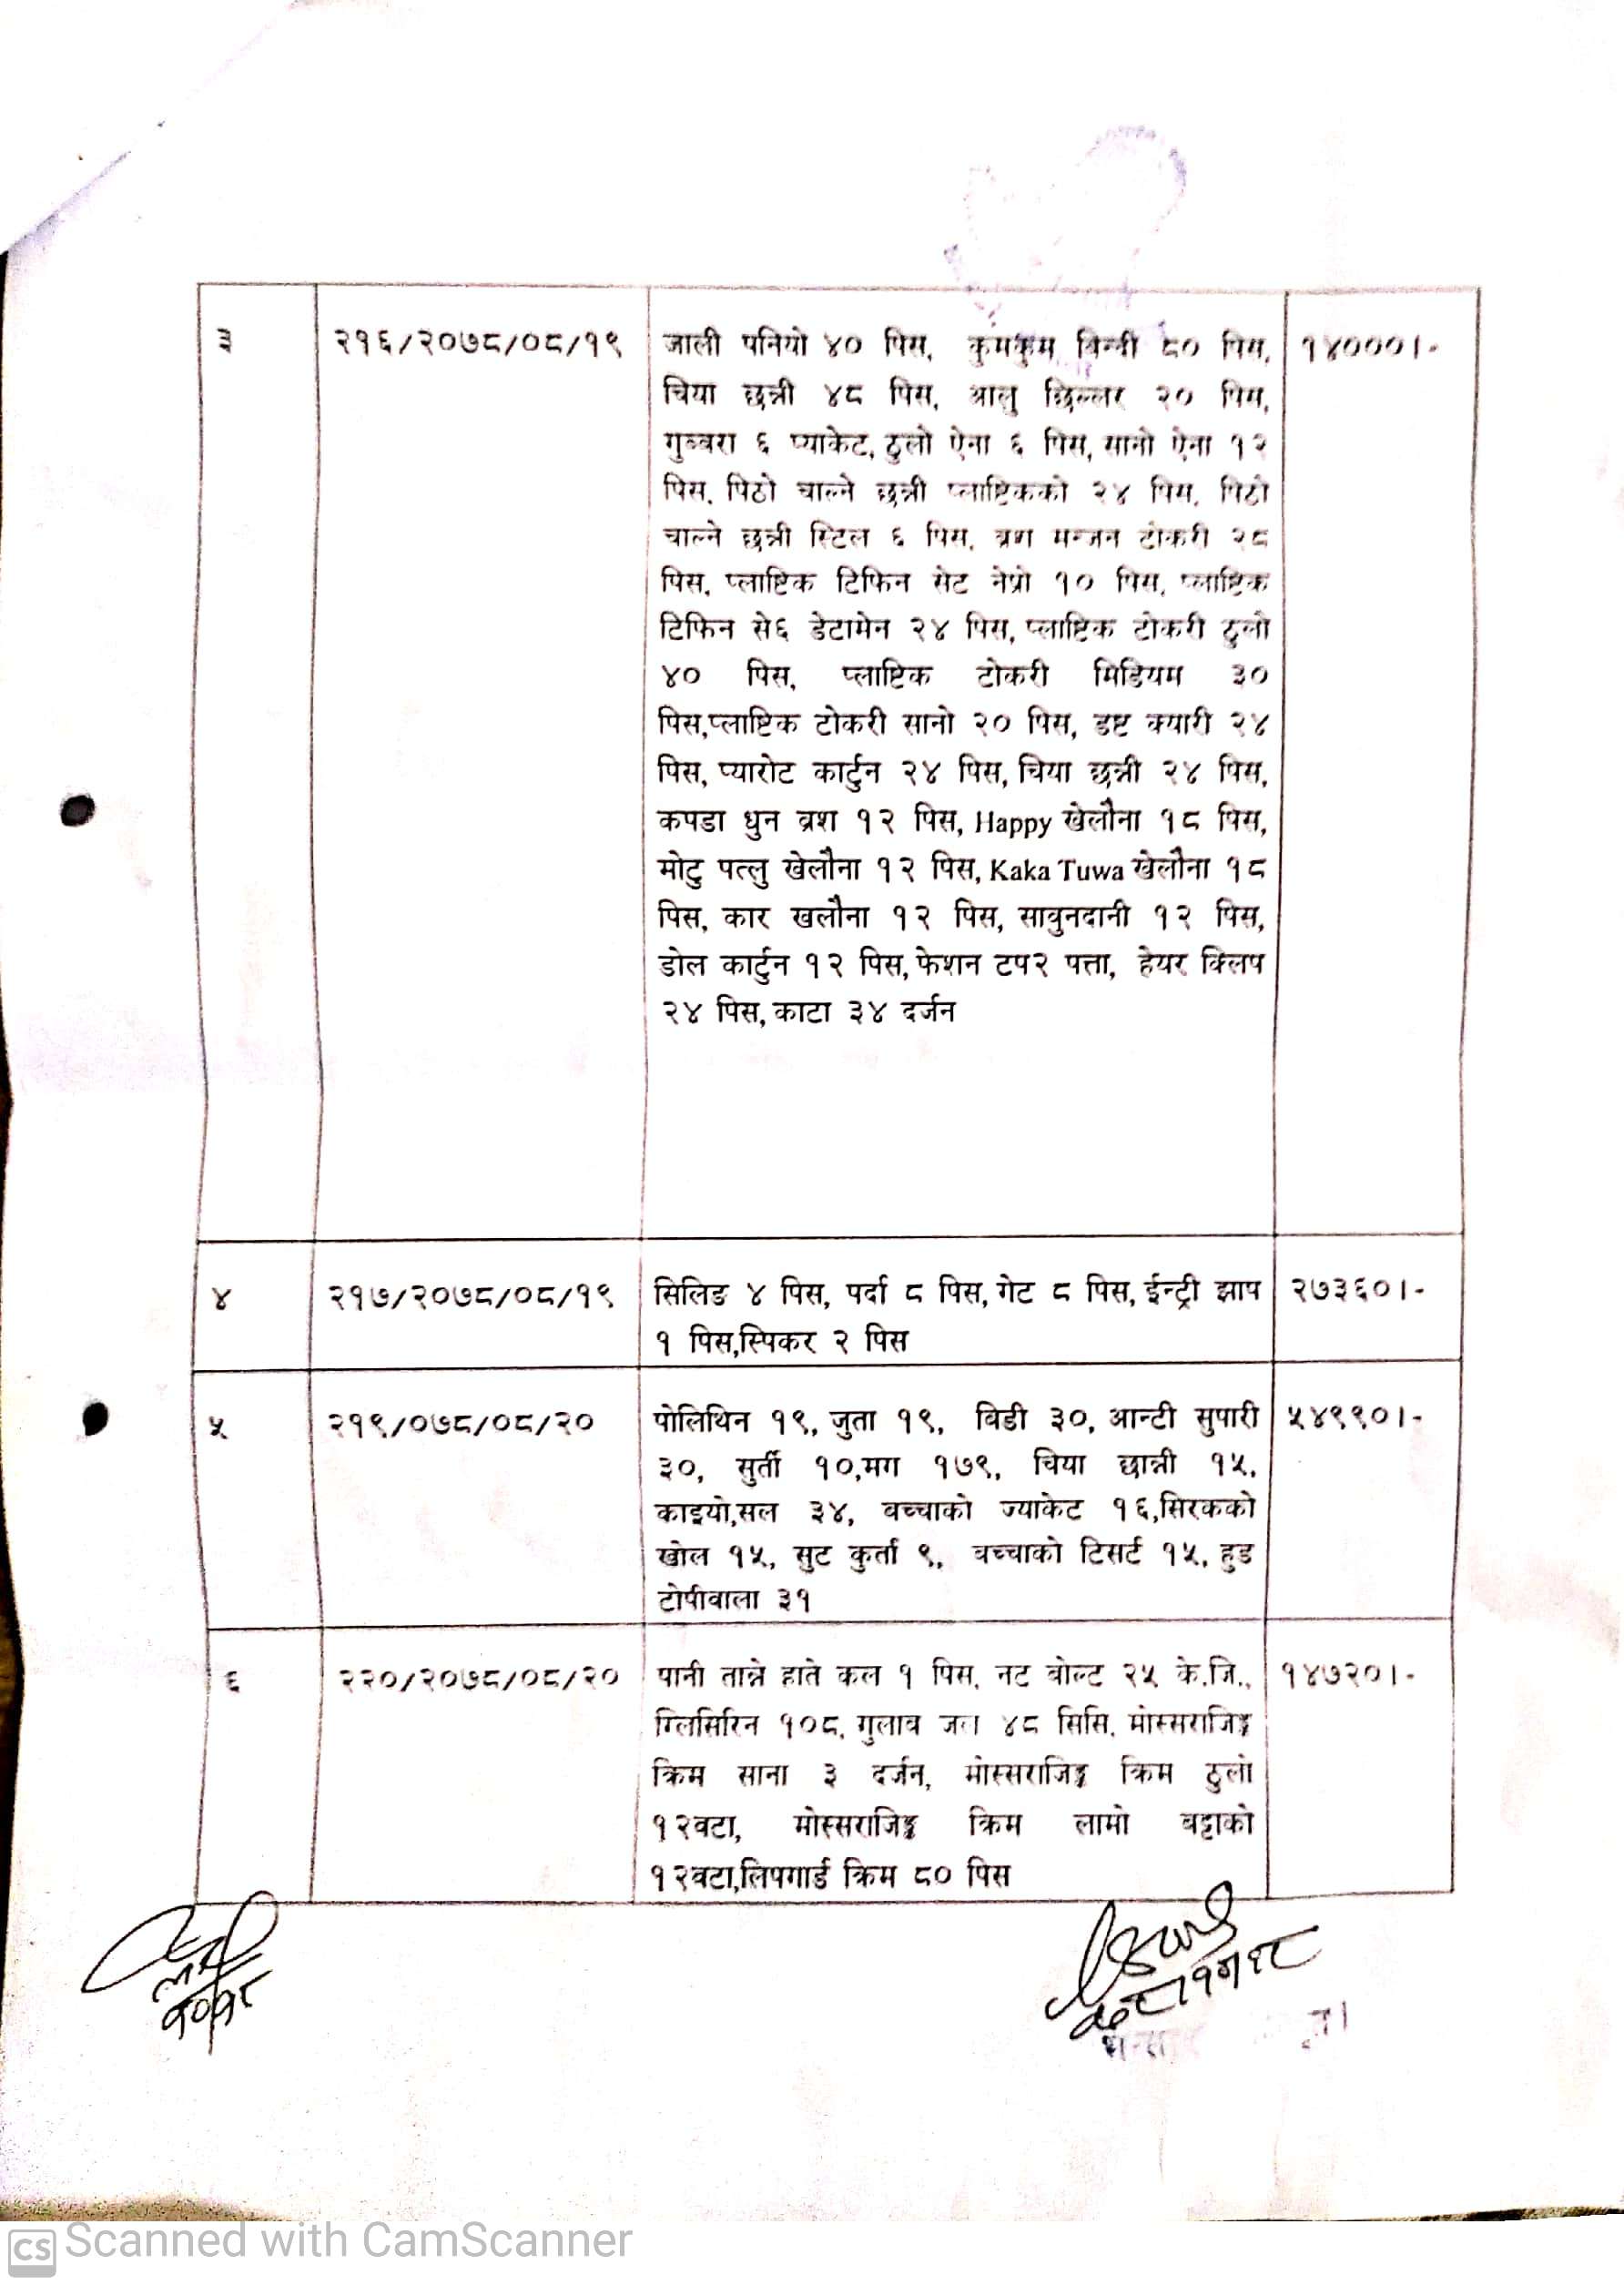 ३ २१६/२०७८/०८/१९ जाली पनियो ४० पिस, कुमकुम बिन्दी ८० पिस, १४०००।-
चिया छन्नी ४८ पिस, आलु छिल्लर २० पिस,
गुब्बरा ६ प्याकेट, ठुलो ऐना ६ पिस, सानो ऐना १२
पिस, पिठो चाल्ने छन्नी प्लाष्टिकको २४ पिस, पिठो
चाल्ने छन्नी स्टिल ६ पिस, ब्रश मन्जन टोकरी २८
पिस, प्लाष्टिक टिफिन सेट नेप्रो १० पिस, प्लाष्टिक
टिफिन से६ डेटामेन २४ पिस, प्लाष्टिक टोकरी ठुलो
४० पिस, प्लाष्टिक टोकरी मिडियम ३०
पिस,प्लाष्टिक टोकरी सानो २० पिस, डष्ट क्यारी २४
पिस, प्यारोट कार्टुन २४ पिस, चिया छन्नी २४ पिस,
कपडा धुन ब्रश १२ पिस, Happy खेलौना १८ पिस,
मोटु पत्लु खेलौना १२ पिस, Kaka Tuwa खेलौना १८
पिस, कार खलौना १२ पिस, साबुनदानी १२ पिस,
डोल कार्टुन १२ पिस, फेशन टप२ पत्ता, हेयर क्लिप
२४ पिस, काटा ३४ दर्जन
४ २१७/२०७८/०८/१९ सिलिङ ४ पिस, पर्दा ८ पिस, गेट ८ पिस, ईन्ट्री झाप २७३६०।-
१ पिस,स्पिकर २ पिस
५ २१९/०७८/०८/२० पोलिथिन १९, जुता १९, बिडी ३०, आन्टी सुपारी ५४९९०।-
३०, सुर्ती १०,मग १७९, चिया छान्नी १५,
काइयो,सल ३४, बच्चाको ज्याकेट १६,सिरकको
खोल १५, सुट कुर्ता ९, बच्चाको टिसर्ट १५, हुड
टोपीवाला ३१
६ २२०/२०७८/०८/२० पानी तान्ने हाते कल १ पिस, नट बोल्ट २५ के.जि., १४७२०।-
ग्लिसिरिन १०८, गुलाब जल ४८ सिसि, मोस्सराजिङ्ग
क्रिम साना ३ दर्जन, मोस्सराजिङ्ग क्रिम ठुलो
१२वटा, मोस्सराजिङ्ग क्रिम लामो बट्टाको
१२वटा,लिपगार्ड क्रिम ८० पिस
CS Scanned with CamScanner